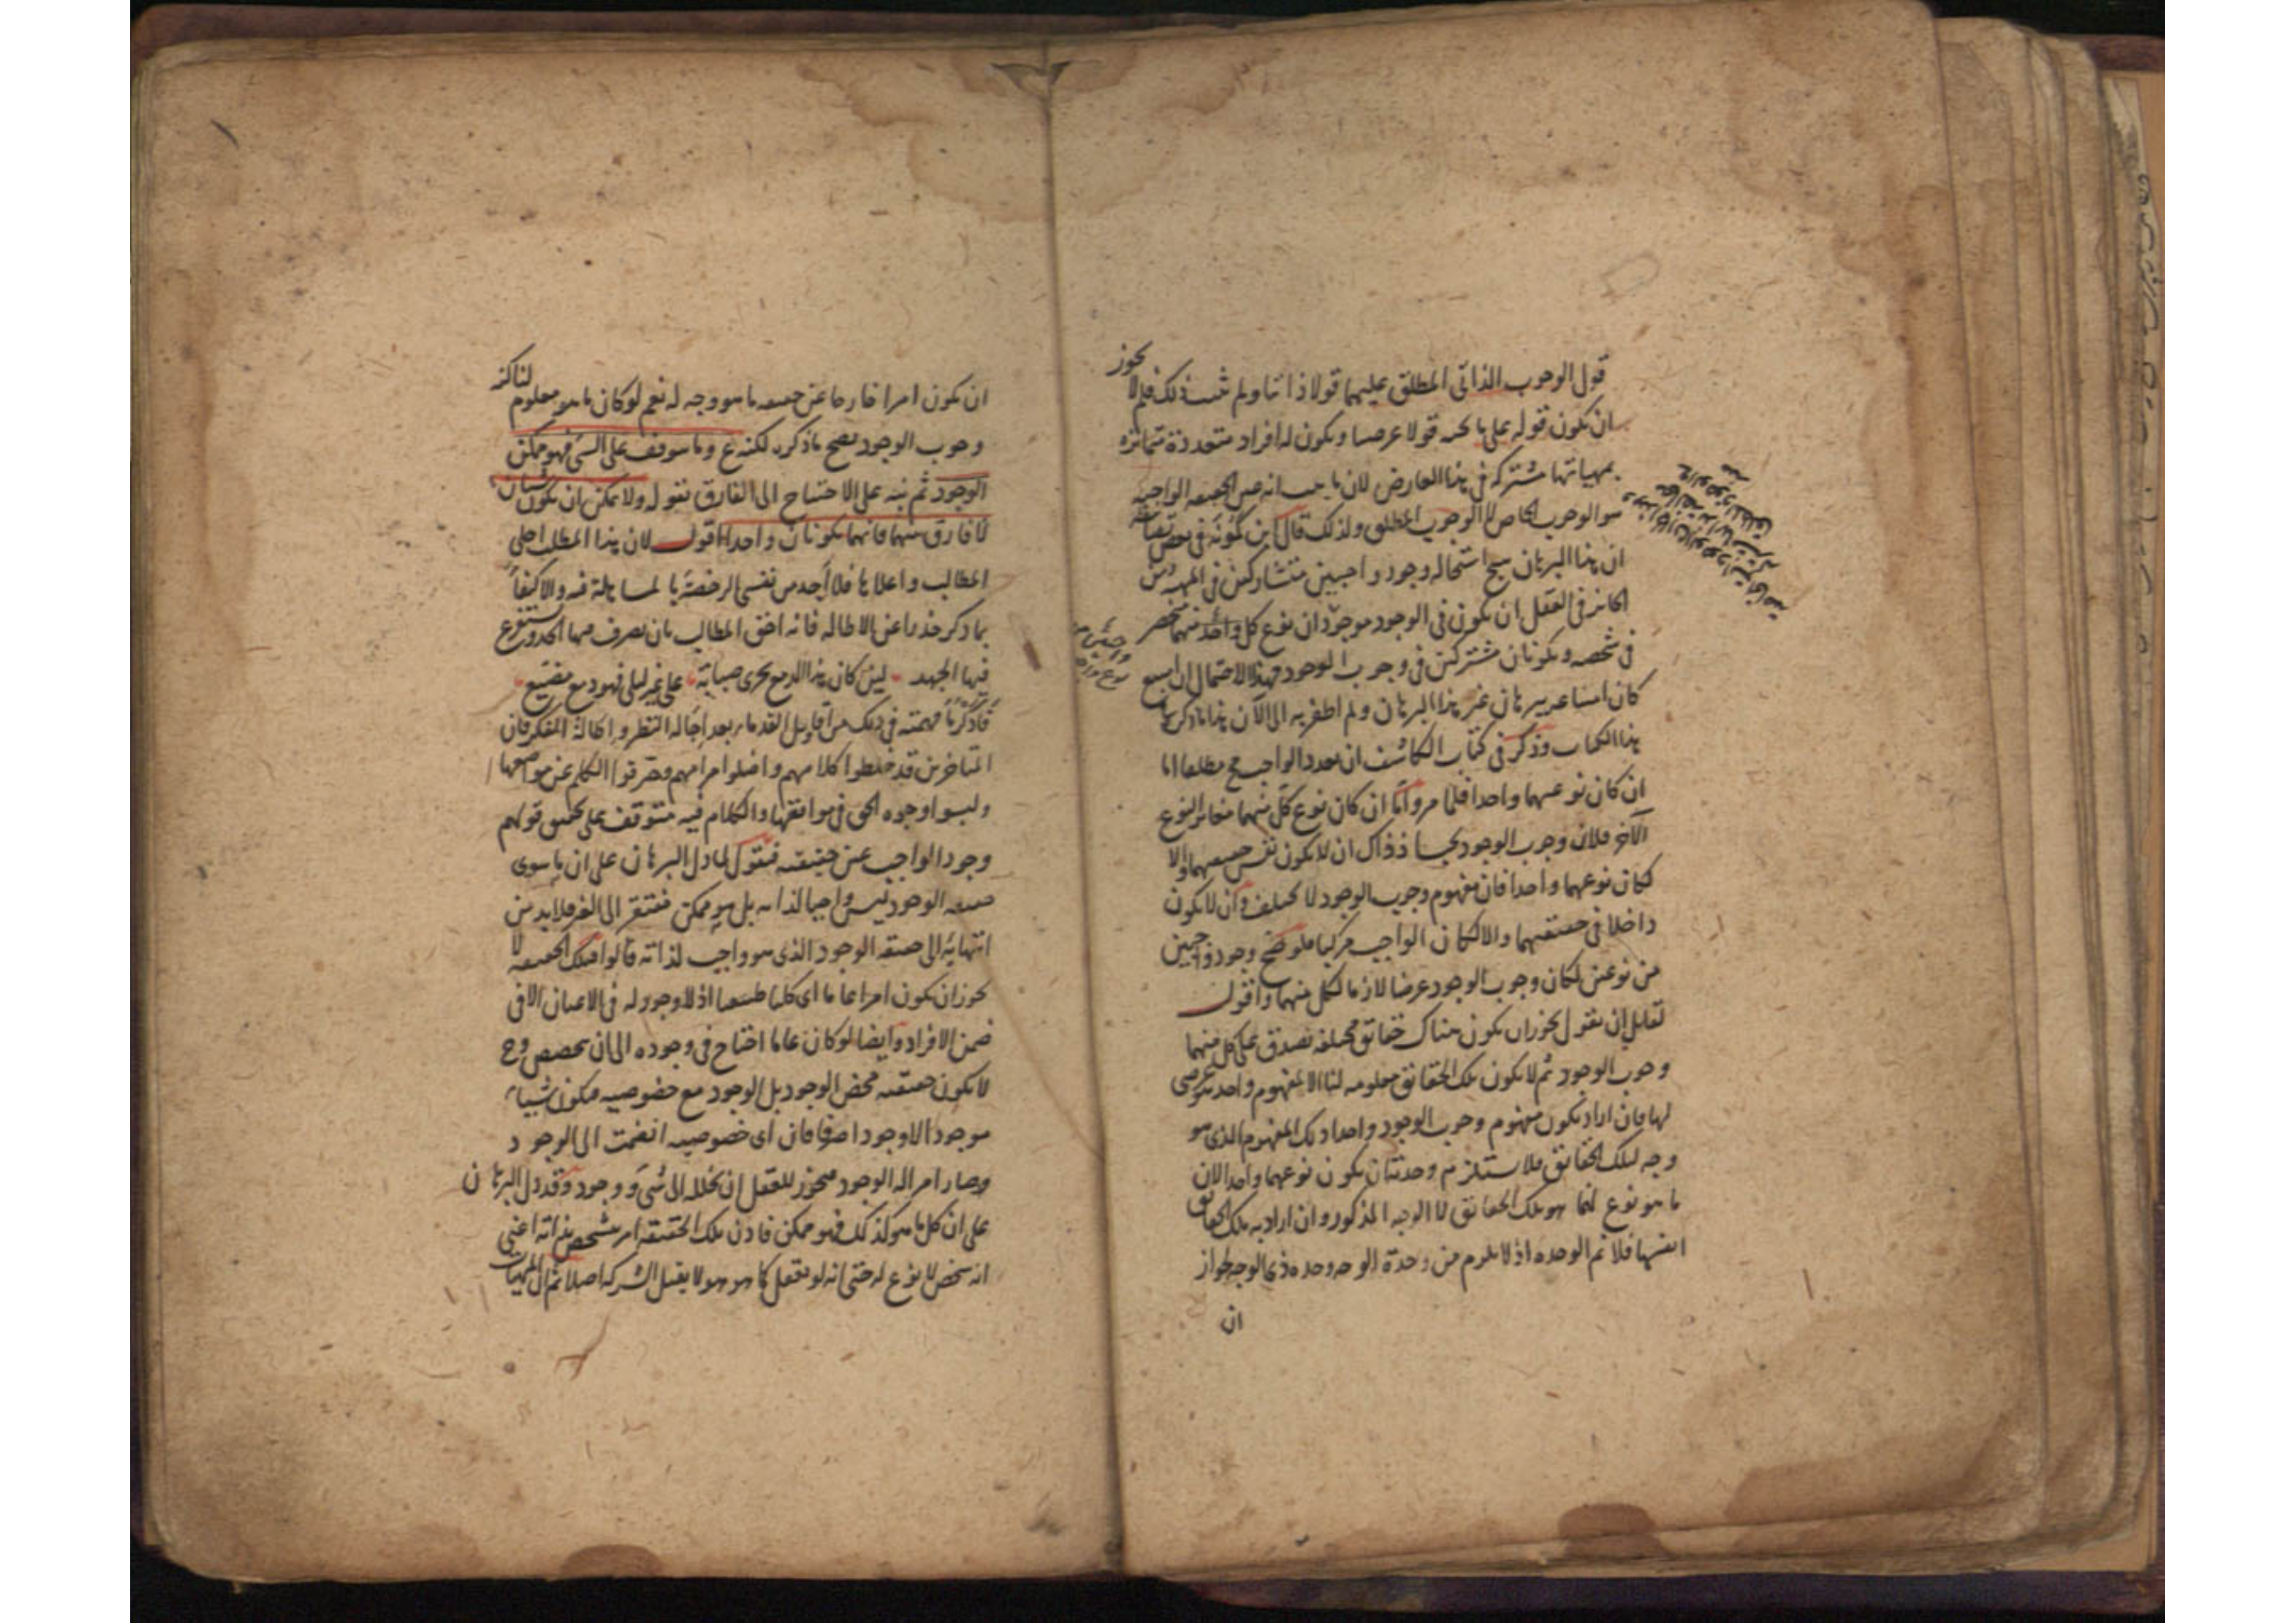 قول الوجوب الذاتي المطلق عليهما قولا ذاتيا ولم يثبت ذلك فلم لا يجوز
ان يكون قوله على ما تحته قولا عرضيا ويكون له افراد متعددة متمايزة
بمهياتها مشتركة في هذا العارض لان ما يجب انه عين الحقيقة الواجبية
هو الوجوب الخاص لا الوجوب المطلق ولذلك قال ابن كمونة في بعض
ان هذا البرهان استحاله وجود واجبين متشاركين في المهية ومن
الجائز في العقل ان يكون في الوجود موجودان نوع كل واحد منهما منحصر
في شخصه ويكونان مشتركين في وجوب الوجود فهذا الاحتمال ان امتنع
كان امتناعه ببرهان غير هذا البرهان ولم اظفر به الى الآن هذا ما ذكره
هذا الكتاب وذكر في كتاب الكاشف ان تعدد الواجب مح مطلقا اما
ان كان نوعهما واحدا فلما مر واما ان كان نوع كل منهما مغاير النوع
الآخر فلان وجوب الوجود يجب اذ ذاك ان لا يكون نفس حقيقتهما والا
لكان نوعهما واحدا فان مفهوم وجوب الوجود لا يختلف وان لا يكون
داخلا في حقيقتهما والا لكان الواجب مركبا فلو صح وجود واجبين
من نوعين لكان وجوب الوجود عرضا لازما لكل منهما واقول
لقايل ان يقول يجوز ان يكون هناك حقائق مختلفة تصدق على كل منهما
وجوب الوجود ثم لا يكون تلك الحقائق معلومة لنا الا بمفهوم واحد عرضي
لها فان اراد بكون مفهوم وجوب الوجود واحدا ذلك المفهوم الذي هو
وجه لتلك الحقائق فلا يستلزم وحدته ان يكون نوعهما واحدا لان
ما هو نوع لنا هو تلك الحقائق لا الوجه المذكور وان اراد به تلك الحقائق
انفسها فلا نم الوحدة اذ لا يلزم من وحدة الوجه وحدة ذي الوجه لجواز
ان
ان يكون امرا خارجا عن حقيقة ما هو وجه له نعم لو كان ما هو معلوم لنا كنه
وجوب الوجود يصح ما ذكره لكنه ع وما يتوقف على الشئ فهو ممكن
الوجود ثم نبه على الاحتياج الى الفارق بقوله ولا يمكن ان يكون شيئان
لا فارق بينهما فانهما يكونان واحدا اقول لان هذا المطلب اجلى
المطالب واعلاها فلا اجد من نفسي الرخصة بالمساهلة فيه والاكتفاء
بما ذكر حذرا عن الاطالة فانه احق المطالب بان يصرف فيها الكد ويستفرغ
فيها الجهد لئن كان هذا الدمع يجري صبابة على غير ليلى فهو دمع مضيع
فاذكر ما فهمته في ذلك من اقاويل القدماء بعد اجالة النظر واطالة التفكر فان
المتاخرين قد خلطوا كلامهم واضلوا مرامهم وحرفوا الكلم عن مواضعها
ولبسوا وجوه الحق في مواقعها والكلام فيه متوقف على تحقيق قولهم
وجود الواجب عين حقيقته فنقول لما دل البرهان على ان ما سوى
حقيقة الوجود ليس واجبا لذاته بل هو ممكن مفتقر الى الغير فلا بد من
انتهائه الى حقيقة الوجود الذي هو واجب لذاته قالوا فتلك الحقيقة لا
يجوز ان يكون امرا عاما اي كليا طبيعيا اذ لا وجود له في الاعيان الا في
ضمن الافراد وايضا لو كان عاما احتاج في وجوده الى ان يتخصص وح
لا يكون حقيقته محض الوجود بل الوجود مع خصوصيه فيكون شيئا
موجودا لا وجودا صرفا فان اي خصوصيه انضمت الى الوجود
وصار امرا له الوجود فيجوز للعقل ان يحلله الى شئ ووجود وقد دل البرهان
على ان كل ما هو كذلك فهو ممكن فاذن تلك الحقيقة امر متشخص بذاته اعني
انه شخص لا نوع له حتى انه لو تعقل كما هو هو لا يقبل الشركة اصلا ثم ان المهيات